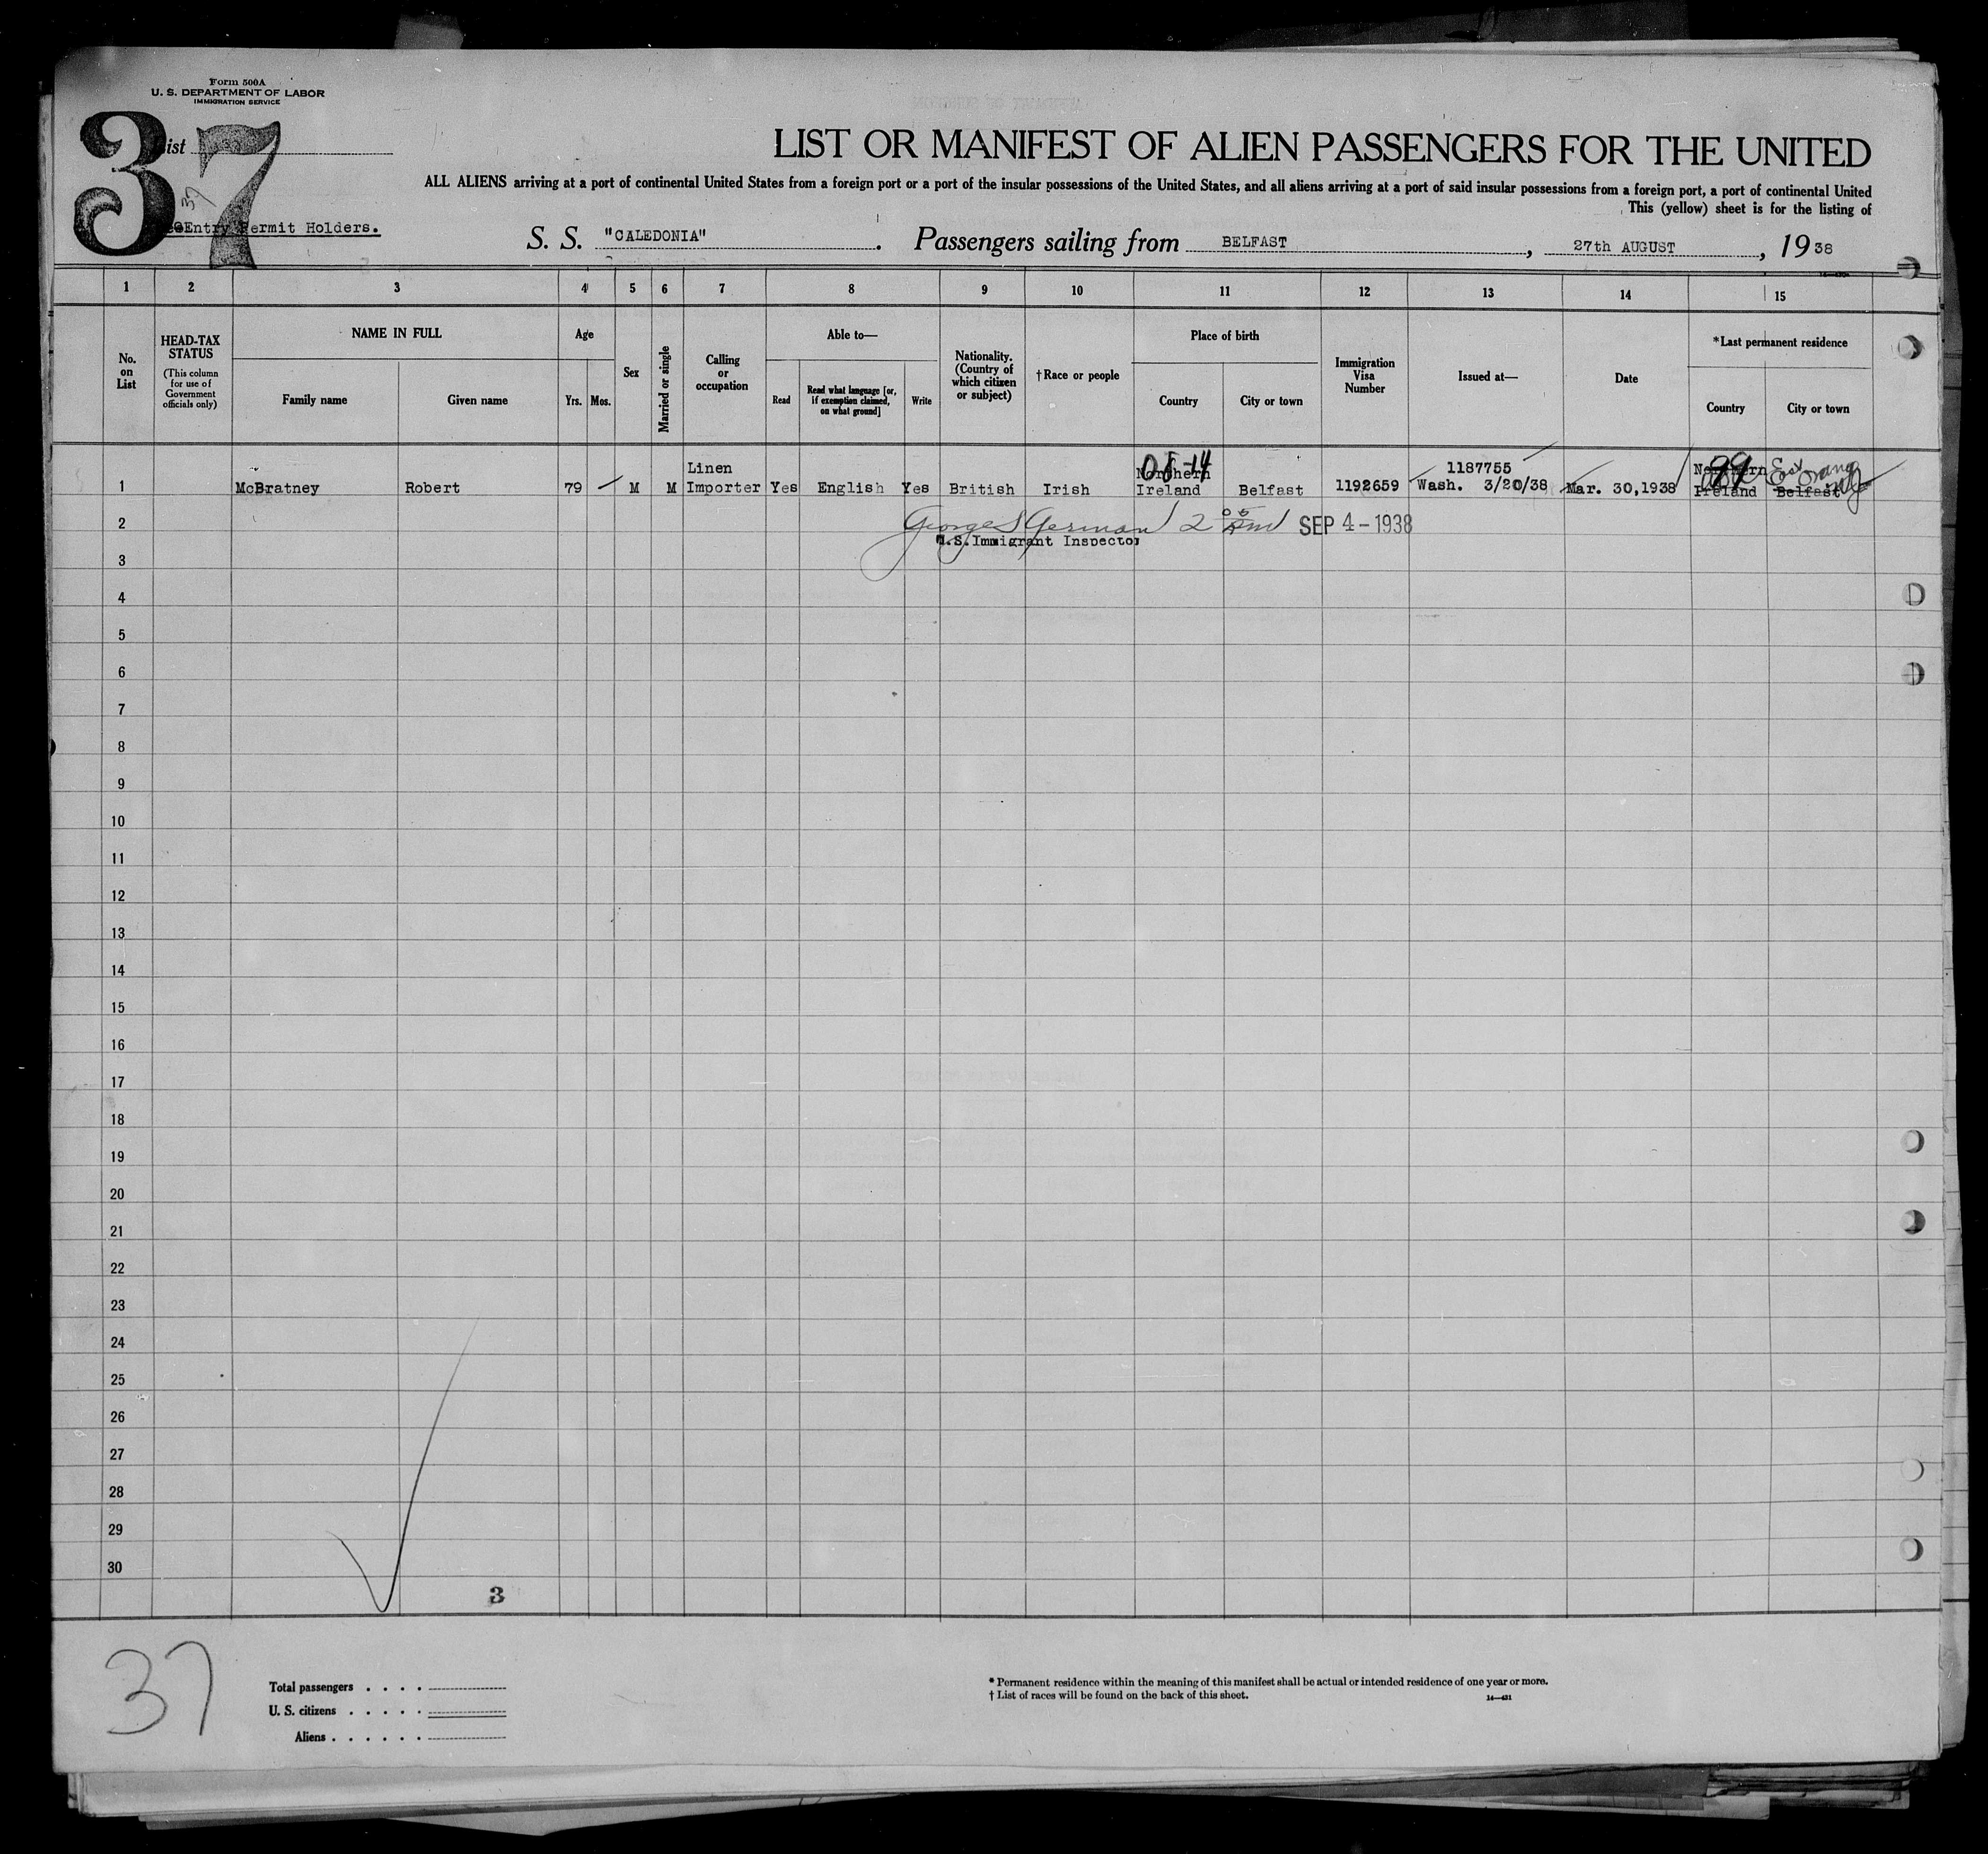 Form 500A
U. S. DEPARTMENT OF LABOR
IMMIGRATION SERVICE
37
List
37
Entry Permit Holders.
LIST OR MANIFEST OF ALIEN PASSENGERS FOR THE UNITED
ALL ALIENS arriving at a port of continental United States from a foreign port or a port of the insular possessions of the United States, and all aliens arriving at a port of said insular possessions from a foreign port, a port of continental United
This (yellow) sheet is for the listing of
S. S. "CALEDONIA". Passengers sailing from BELFAST, 27th AUGUST, 1938
1 2 3 4 5 6 7 8 9 10 11 12 13 14 15
No. on List
HEAD-TAX STATUS
(This column for use of Government officials only)
NAME IN FULL
Family name
Given name
Age
Yrs.
Mos.
Sex
Married or single
Calling or occupation
Able to—
Read
Read what language [or, if exemption claimed, on what ground]
Write
Nationality. (Country of which citizen or subject)
†Race or people
Place of birth
Country
City or town
Immigration Visa Number
Issued at—
Date
*Last permanent residence
Country
City or town
1 McBratney Robert 79 M M Linen Importer Yes English Yes British Irish Northern Ireland Belfast 1192659 1187755 Wash. 3/20/38 Mar. 30,1938 Northern Ireland Belfast
99
East Orange NJ
2
George S German 2 05 PM SEP 4 - 1938
U.S. Immigrant Inspector
3
4
5
6
7
8
9
10
11
12
13
14
15
16
17
18
19
20
21
22
23
24
25
26
27
28
29
30
3
37
Total passengers . . . .
U. S. citizens . . . . .
Aliens . . . . . .
* Permanent residence within the meaning of this manifest shall be actual or intended residence of one year or more.
† List of races will be found on the back of this sheet.
14—431